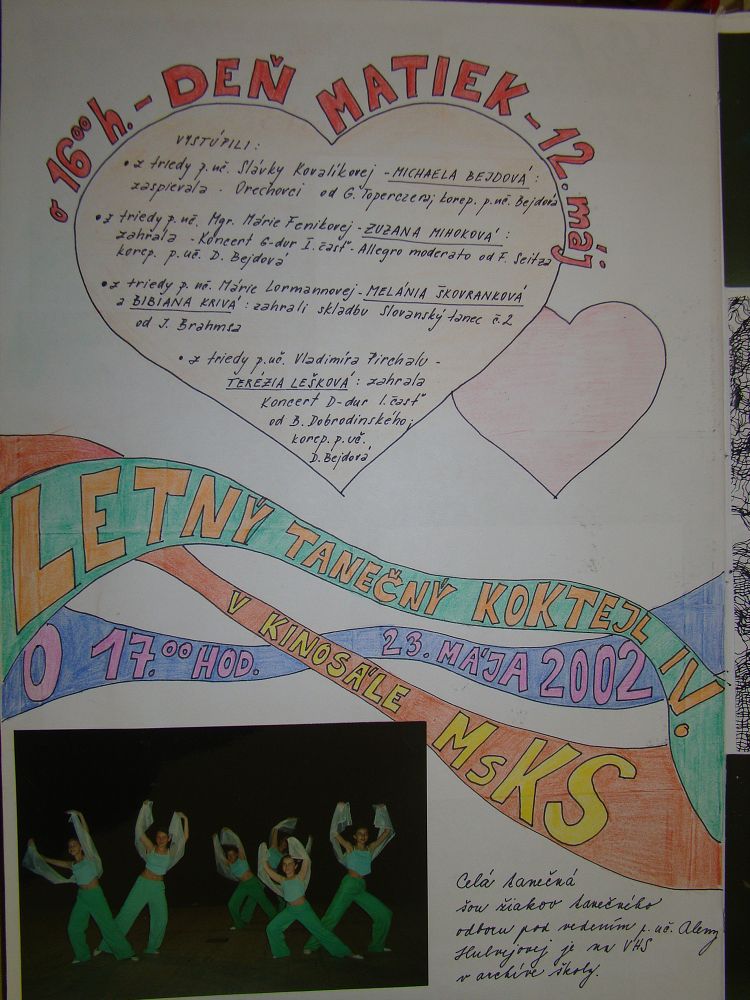 o 16⁰⁰ h. - DEŇ MATIEK - 12. máj
VYSTÚPILI :
• z triedy p. uč. Slávky Kovalíkovej - MICHAELA BEJDOVÁ :
zaspievala - Orechovei od G. Toperczera; korep. p. uč. Bejdová
• z triedy p. uč. Mgr. Márie Fenikovej - ZUZANA MIHOKOVÁ :
zahrala - Koncert G-dur I. časť - Allegro moderato od F. Seitza
korep. p. uč. D. Bejdová
• z triedy p. uč. Márie Lormannovej - MELÁNIA ŠKOVRANKOVÁ
a BIBIANA KRIVÁ : zahrali skladbu Slovanský tanec č. 2
od J. Brahmsa
• z triedy p. uč. Vladimíra Pirchalu -
TERÉZIA LEŠKOVÁ : zahrala
Koncert D-dur I. časť
od B. Dobrodinského;
korep. p. uč.
D. Bejdová
LETNÝ TANEČNÝ KOKTEJL IV.
O 17.⁰⁰ HOD. 23. MÁJA 2002
V KINOSÁLE MsKS
Celá tanečná
šou žiakov tanečného
odboru pod vedením p. uč. Aleny
je na VHS
v archíve školy.